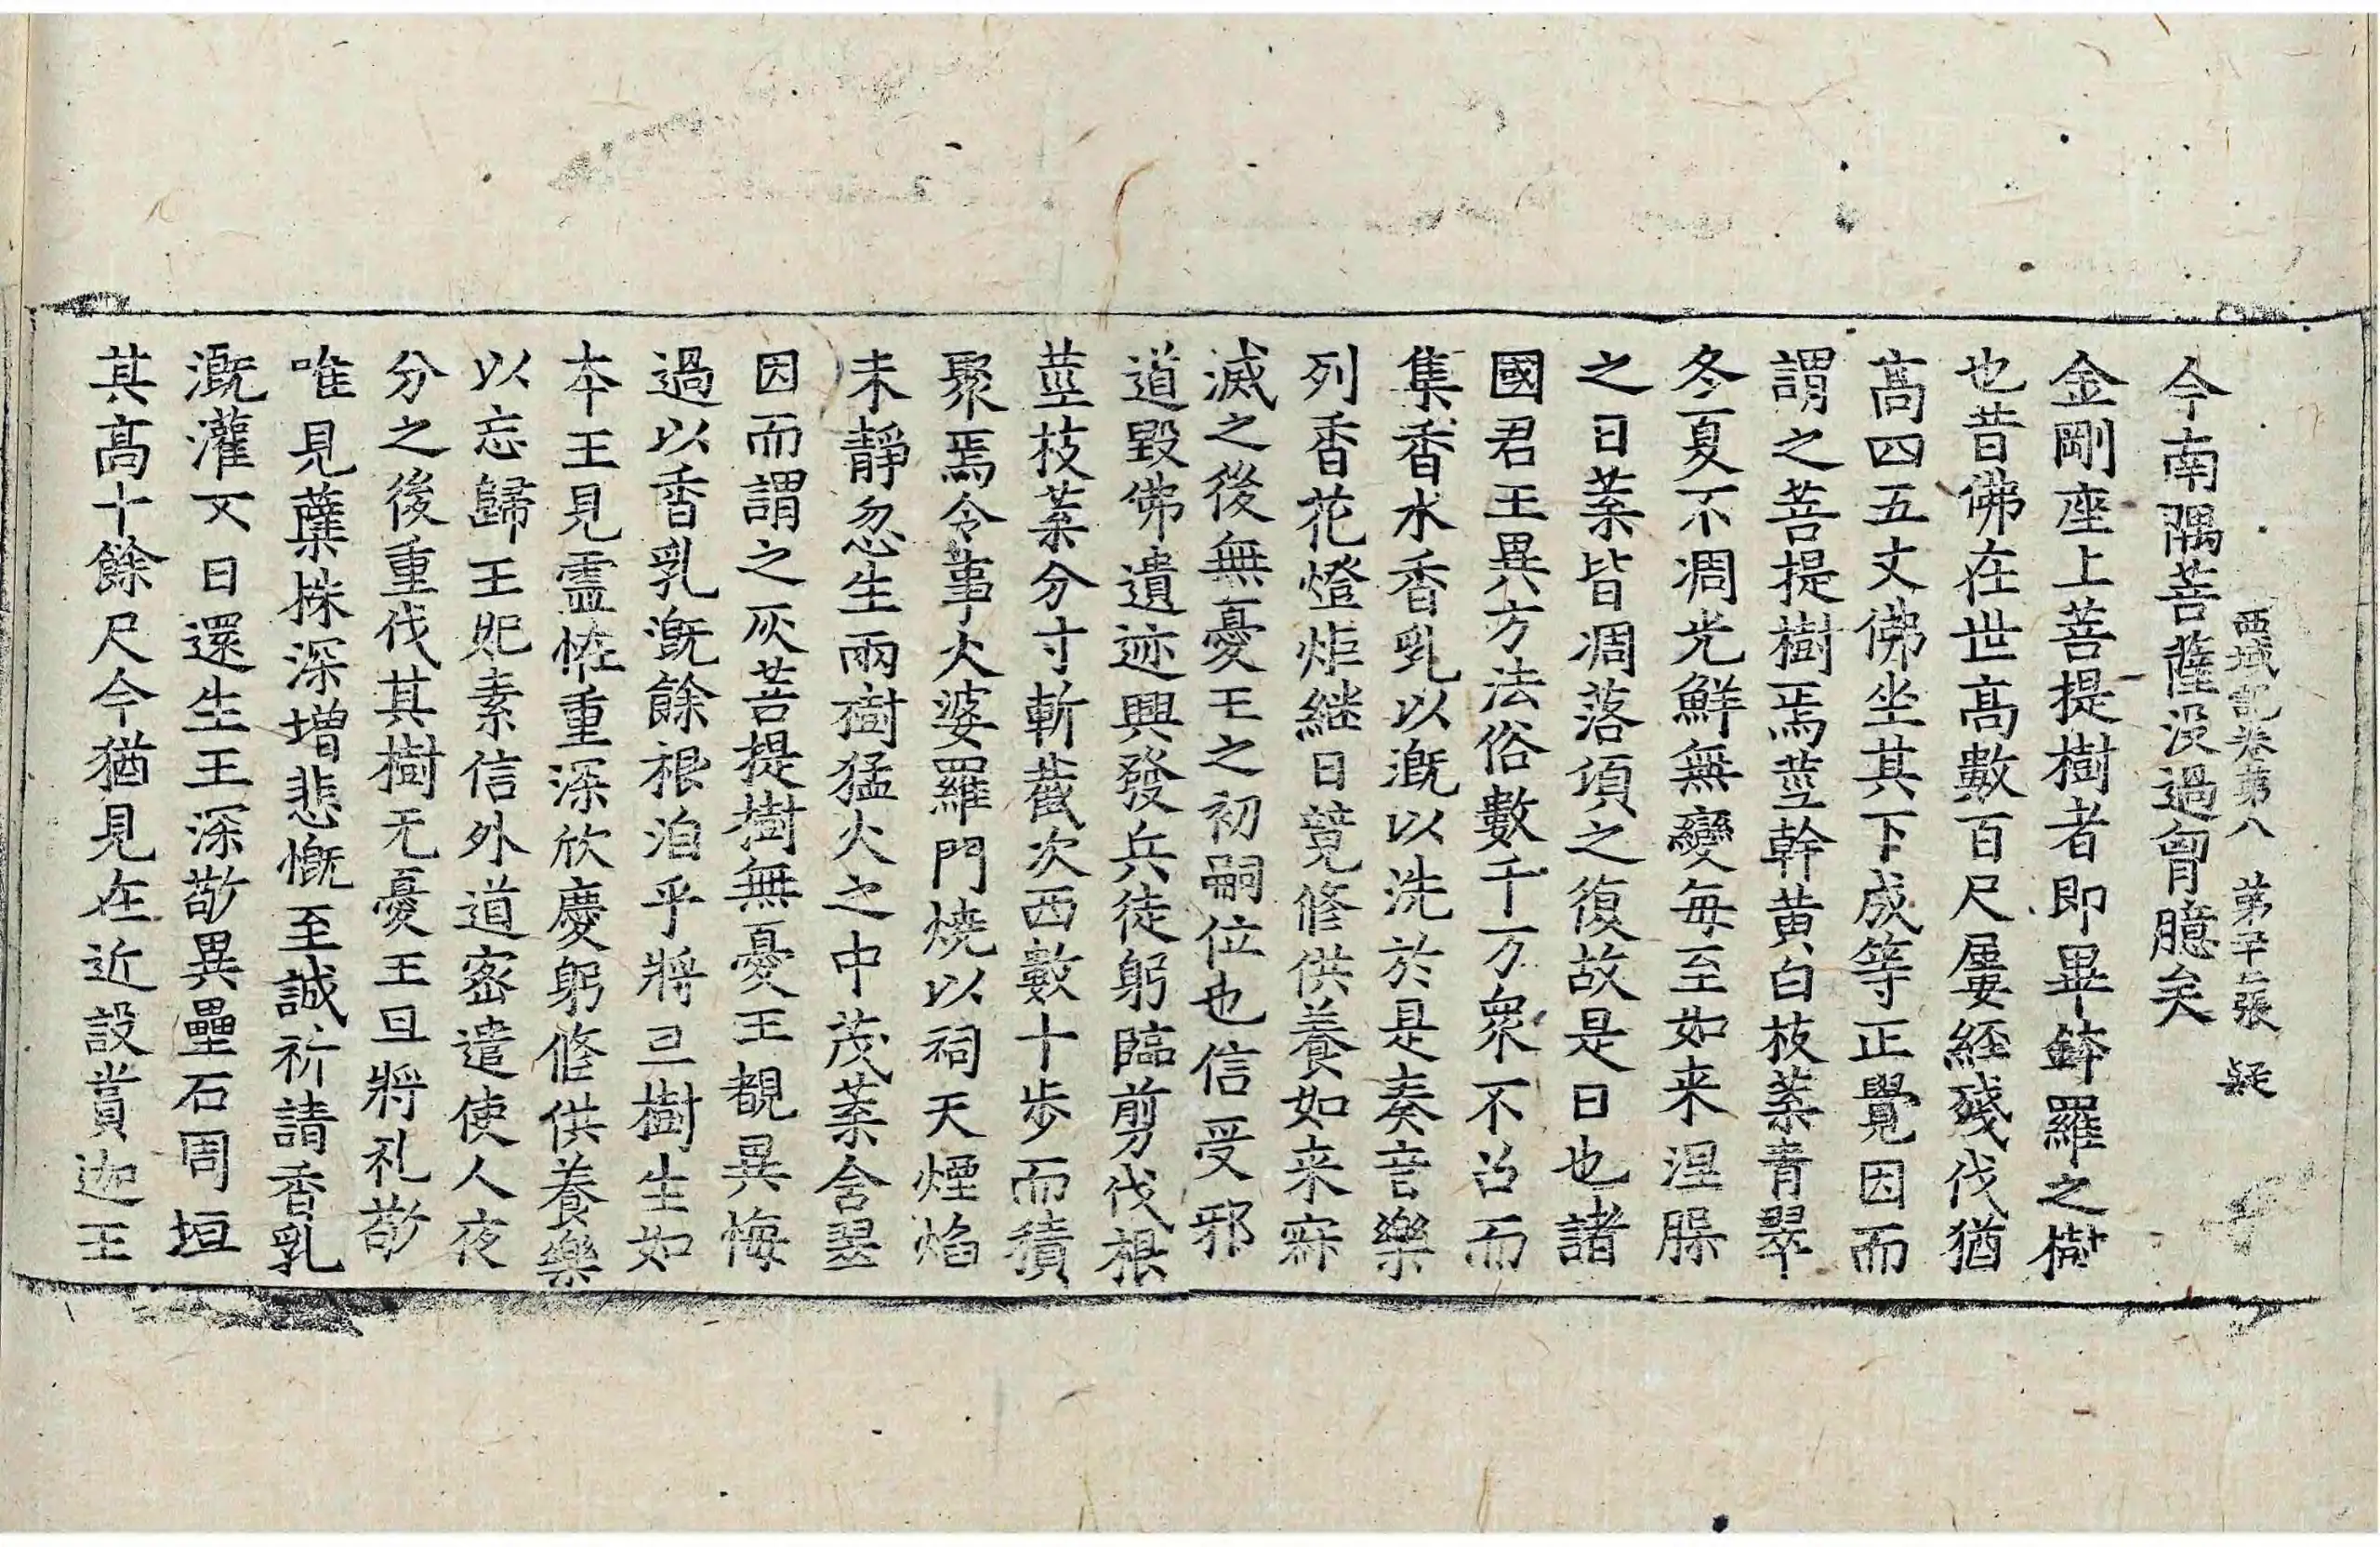 西域記卷第八 第二張 疑
今南隅菩薩沒過胷臆矣
金剛座上菩提樹者即畢鉢羅之樹
也昔佛在世高數百尺屢經殘伐猶
高四五丈佛坐其下成等正覺因而
謂之菩提樹焉莖幹黃白枝葉青翠
冬夏不凋光鮮無變每至如来涅槃
之日葉皆凋落頃之復故是日也諸
國君王異方法俗數千万衆不召而
集香水香乳以溉以洗於是奏音樂
列香花燈炬継日競修供養如来寂
滅之後無憂王之初嗣位也信受邪
道毀佛遺迹興發兵徒躬臨剪伐根
莖枝葉分寸斬截次西數十步而積
聚焉令事火婆羅門燒以祠天煙焰
未靜忽生兩樹猛火之中茂葉含翠
因而謂之灰菩提樹無憂王覩異悔
過以香乳溉餘根洎乎將旦樹生如
本王見靈恠重深欣慶躬修供養樂
以忘歸王妃素信外道密遣使人夜
分之後重伐其樹无憂王旦將礼敬
唯見蘖株深增悲慨至誠祈請香乳
溉灌不日還生王深敬異壘石周垣
其高十餘尺今猶見在近設賞迦王